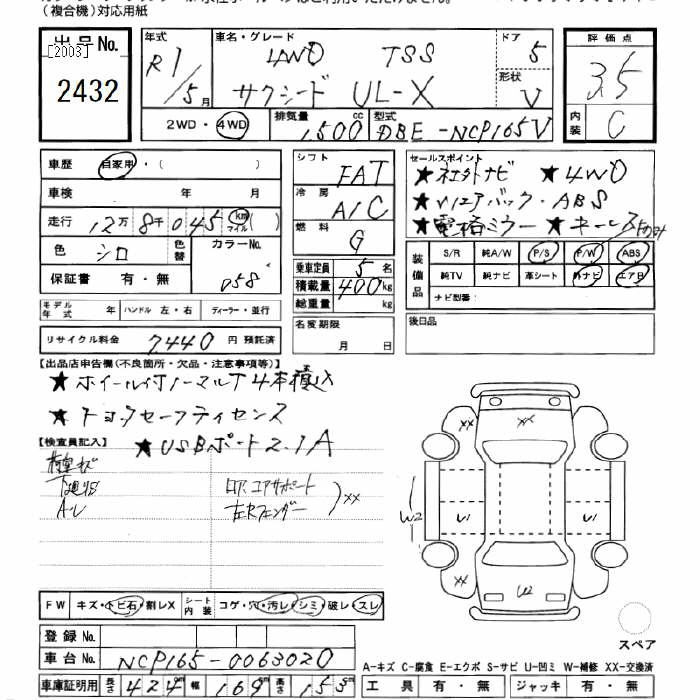 (複合機)対応用紙
出品No.
[2003]
2432
年式
R1/5月
車名・グレード
4WD TSS
サクシード UL-X
ドア 5
形状 V
評価点
3.5
内装 C
2WD・4WD
排気量 1,500 cc
型式 DBE-NCP165V
車歴 自家用・( )
車検 年 月
走行 12万8千045 km マイル ( )
色 シロ
色替
カラーNo. 058
保証書 有・無
シフト FAT
冷房 A/C
燃料 G
乗車定員 5名
積載量 400kg
総重量 kg
セールスポイント
★社外ナビ ★4WD
★Wエアバック・ABS
★電格ミラー ★キーレス
装備品
S/R 純A/W P/S P/W ABS
純TV 純ナビ 革シート 外ナビ エアB
ナビ型番:
モデル年式 年 ハンドル 左・右 ディーラー・並行
リサイクル料金 7,440 円 預託済
名変期限
月 日
後日品
【出品店申告欄(不良箇所・欠品・注意事項等)】
★ホイール付ノーマルT4本積込
★トヨタセーフティセンス
★USBポート2.1A
【検査員記入】
下廻りS
A-U
コアサポート
左Rフェンダー
××
××
××
××
W2
U1
U1
U2
FW キズ・トビ石・割レX
シート内装 コゲ・穴・汚レ・シミ・破レ・スレ
スペア
登録No.
車台No. NCP165-0063020
A-キズ C-腐食 E-エクボ S-サビ U-凹ミ W-補修 XX-交換済
車庫証明用 長さ 424cm 幅 169cm 高さ 153cm
工具 有・無 ジャッキ 有・無